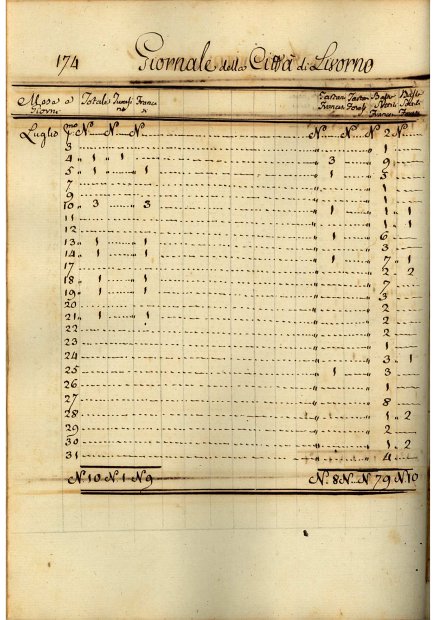 174 Giornale della Città di Livorno
Mese e Totale Francesi
Giorni
Luglio N° N° N° N° N° N° 2 N°
3 1
4 1 1 3 9
5 1 1 1 5
7 1
9 1
10 3 3
11 1 1 1
12 1 6
13 1 1 3
14 1 1 1 7 1
17 2 2
18 1 1 7
19 1 1 3
20 2
21 1 1 2
22 2
23 1
24 3 1
25 1 3
26 1
27 8
28 1 2
29 2
30 1 2
31 4
N. 10 N. 1 N. 9 N. 8 N. N. 79 N. 10